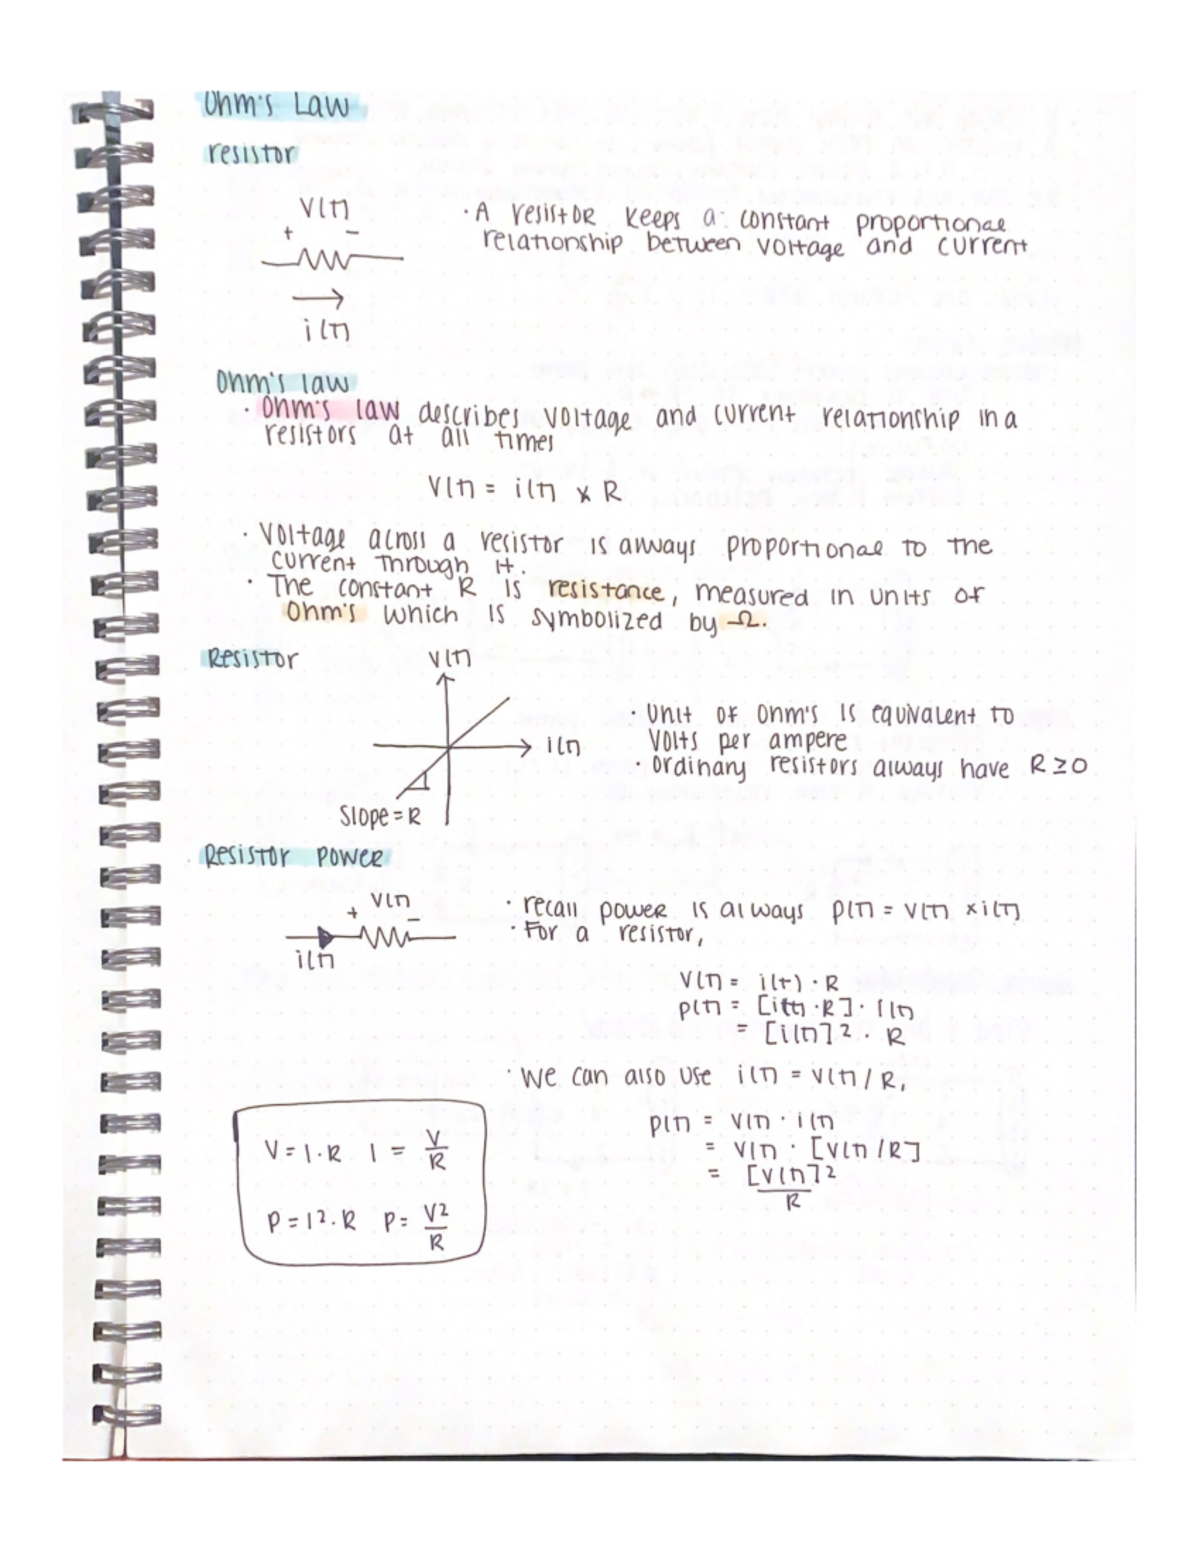 Ohm's Law
resistor
V(t)
+ -
i(t)
· A resistor keeps a constant proportional
relationship between voltage and current
Ohm's law
· Ohm's law describes voltage and current relationship in a
resistors at all times
V(t) = i(t) x R
· Voltage across a resistor is always proportional to the
current through it.
· The constant R is resistance, measured in units of
Ohm's which is symbolized by Ω.
Resistor
V(t)
i(t)
Slope = R
· Unit of Ohm's is equivalent to
Volts per ampere
· Ordinary resistors always have R ≥ 0
Resistor power
V(t)
+ -
i(t)
· recall power is always p(t) = v(t) x i(t)
· For a resistor,
V(t) = i(t) · R
p(t) = [i(t) · R] · i(t)
= [i(t)]² · R
· We can also use i(t) = v(t) / R,
p(t) = v(t) · i(t)
= v(t) · [v(t) / R]
= [v(t)]²
R
V = I · R I = V/R
P = I² · R P = V²/R